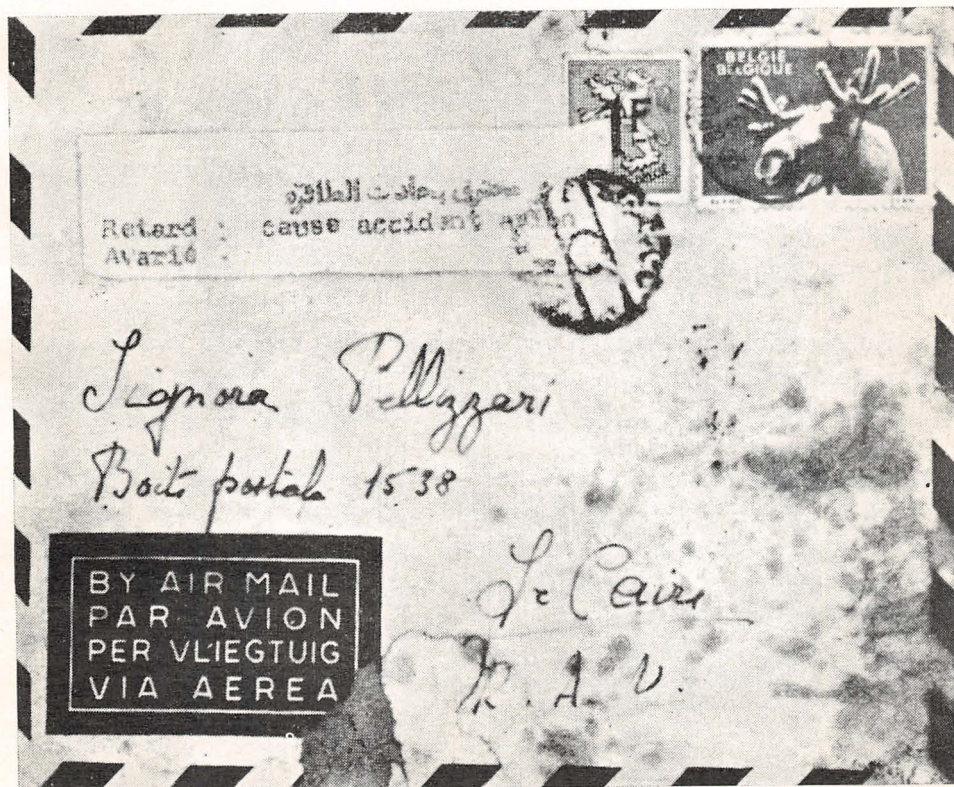 BELGIË
BELGIQUE
بحادث الطائرة
Retard : cause accident avion
Avarié :
Signora Pellizzari
Boite postale 1538
Le Caire
R. A. U.
BY AIR MAIL
PAR AVION
PER VLIEGTUIG
VIA AEREA